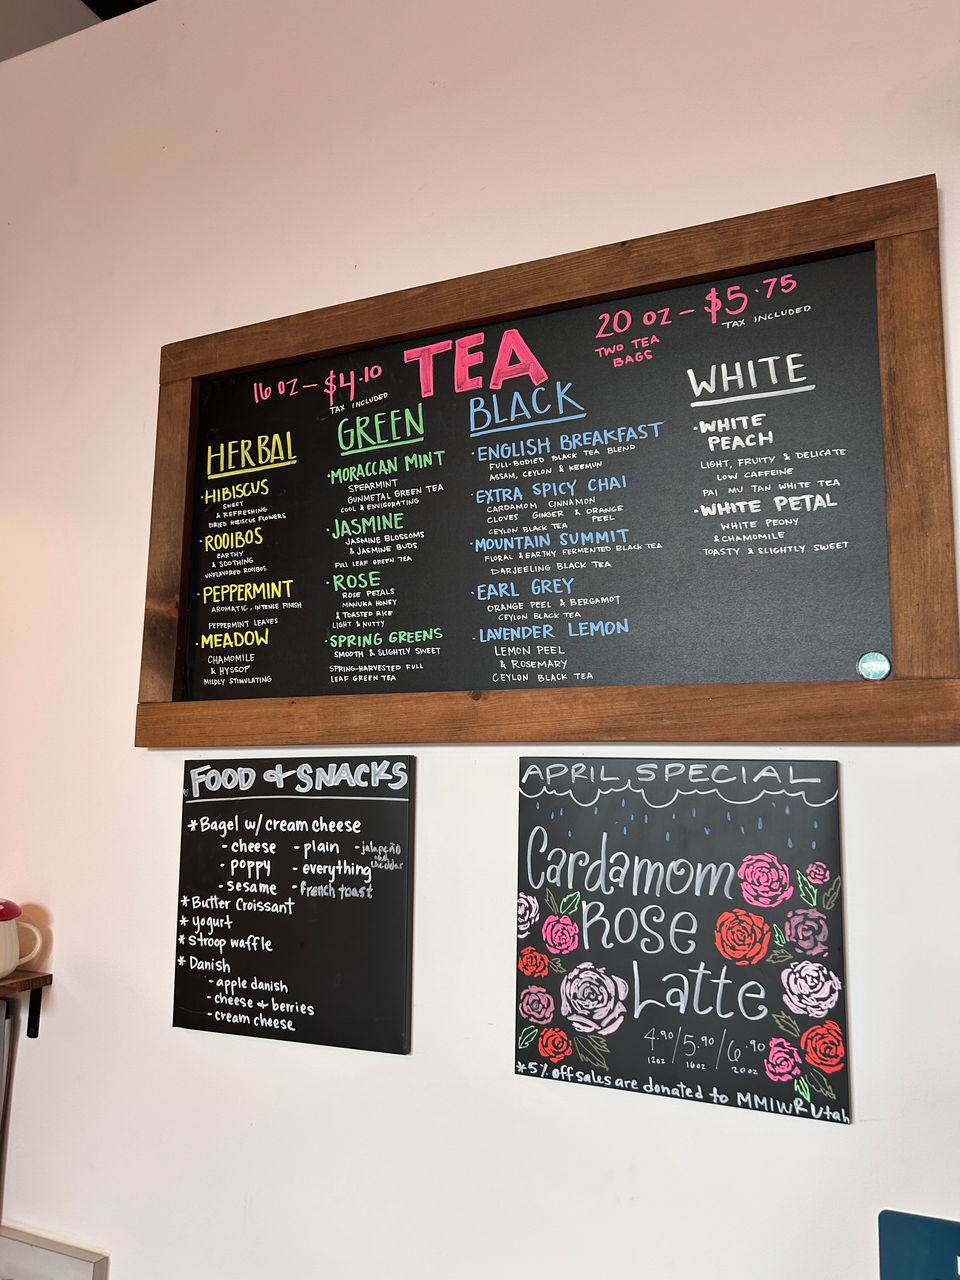 TEA
16 OZ - $4.10
TAX INCLUDED
20 OZ - $5.75
TAX INCLUDED
TWO TEA
BAGS
HERBAL
·HIBISCUS
SWEET
& REFRESHING
DRIED HIBISCUS FLOWERS
·ROOIBOS
EARTHY
& SOOTHING
UNFLAVORED ROOIBOS
·PEPPERMINT
AROMATIC, INTENSE FINISH
PEPPERMINT LEAVES
·MEADOW
CHAMOMILE
& HYSSOP
MILDLY STIMULATING
GREEN
·MORACCAN MINT
SPEARMINT
GUNMETAL GREEN TEA
COOL & ENVIGORATING
·JASMINE
JASMINE BLOSSOMS
& JASMINE BUDS
FULL LEAF GREEN TEA
·ROSE
ROSE PETALS
MANUKA HONEY
& TOASTED RICE
LIGHT & NUTTY
·SPRING GREENS
SMOOTH & SLIGHTLY SWEET
SPRING-HARVESTED FULL
LEAF GREEN TEA
BLACK
·ENGLISH BREAKFAST
FULL-BODIED BLACK TEA BLEND
ASSAM, CEYLON & KEEMUN
·EXTRA SPICY CHAI
CARDAMOM CINNAMON
CLOVES GINGER & ORANGE
PEEL
CEYLON BLACK TEA
·MOUNTAIN SUMMIT
FLORAL & EARTHY FERMENTED BLACK TEA
DARJEELING BLACK TEA
·EARL GREY
ORANGE PEEL & BERGAMOT
CEYLON BLACK TEA
·LAVENDER LEMON
LEMON PEEL
& ROSEMARY
CEYLON BLACK TEA
WHITE
·WHITE
PEACH
LIGHT, FRUITY & DELICATE
LOW CAFFEINE
PAI MU TAN WHITE TEA
·WHITE PETAL
WHITE PEONY
& CHAMOMILE
TOASTY & SLIGHTLY SWEET
FOOD & SNACKS
*Bagel w/ cream cheese
- cheese - plain - jalapeño
and cheddar
- poppy - everything
- sesame - french toast
*Butter Croissant
* yogurt
* stroop waffle
* Danish
- apple danish
- cheese & berries
- cream cheese
APRIL SPECIAL
Cardamom
Rose
Latte
4.90/5.90/6.90
12oz 16oz 20oz
*5% off sales are donated to MMIWR Utah